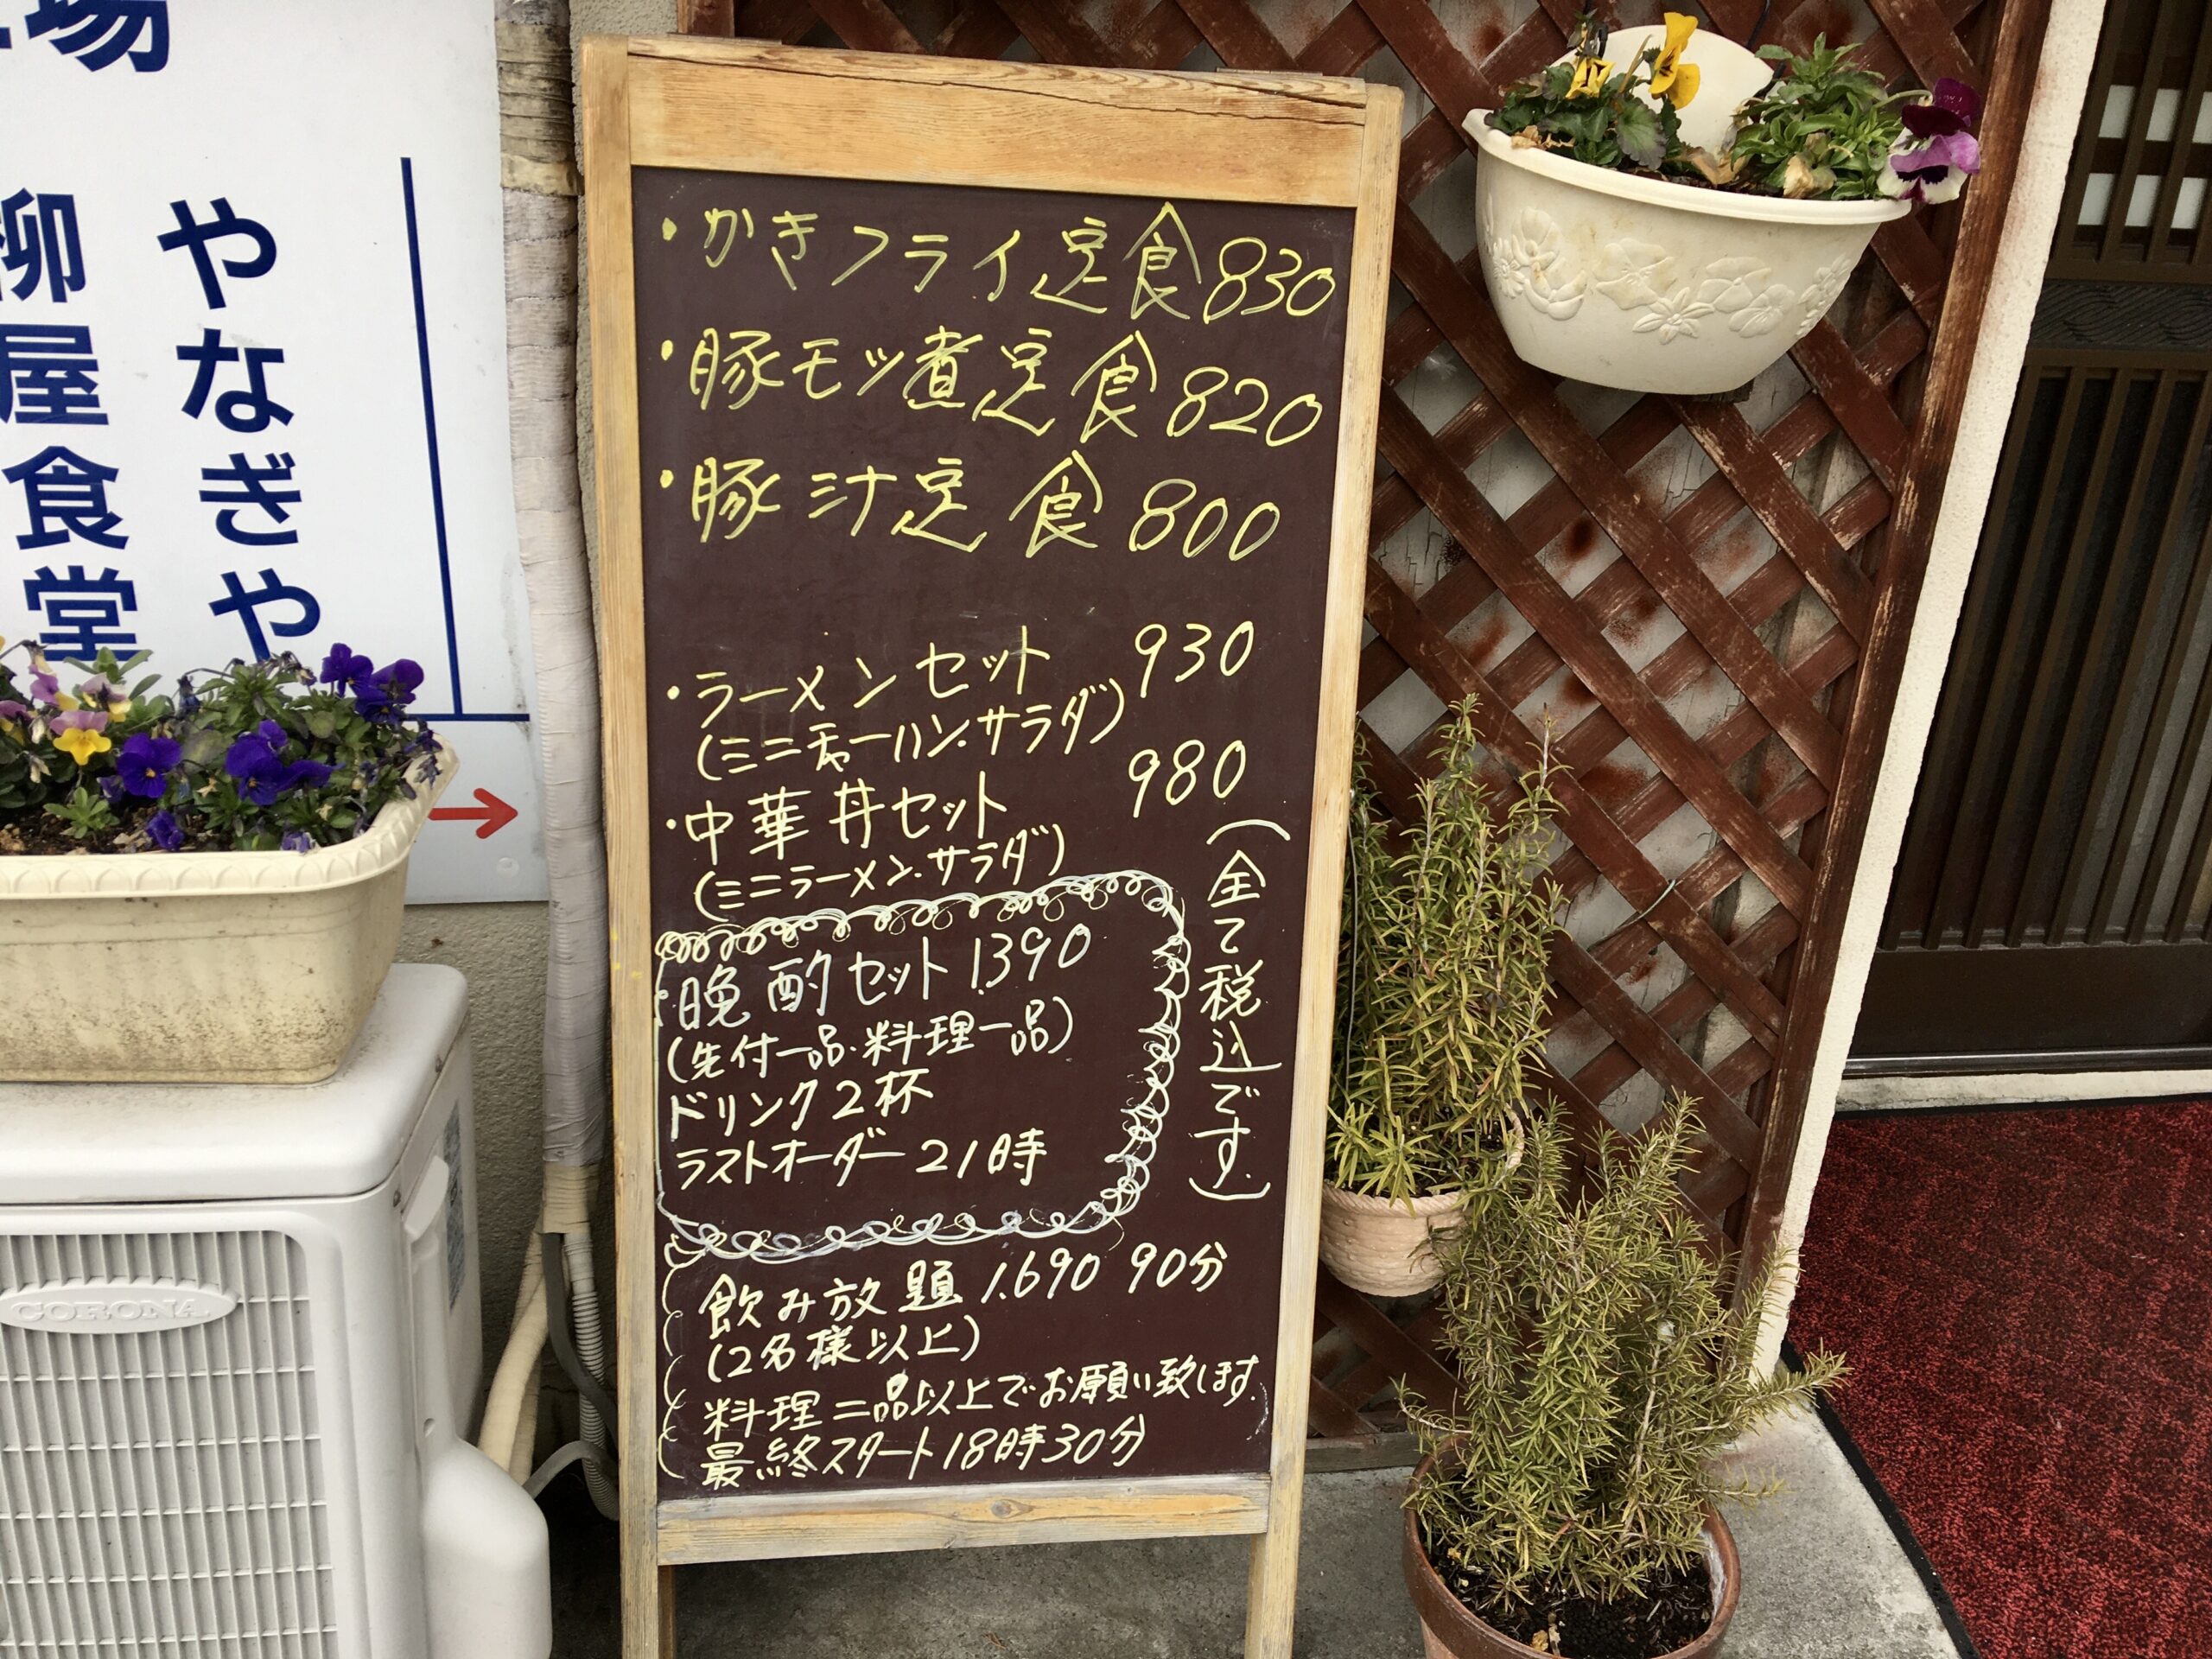 場
やなぎや
柳屋食堂
・かきフライ定食830
・豚モツ煮定食820
・豚汁定食800
・ラーメンセット 930
(ミニチャーハン.サラダ)
・中華丼セット 980
(ミニラーメン.サラダ)
(全て税込です.)
晩酌セット 1.390
(先付一品.料理一品)
ドリンク2杯
ラストオーダー21時
飲み放題 1.690 90分
(2名様以上)
料理二品以上でお願い致します.
最終スタート18時30分
CORONA